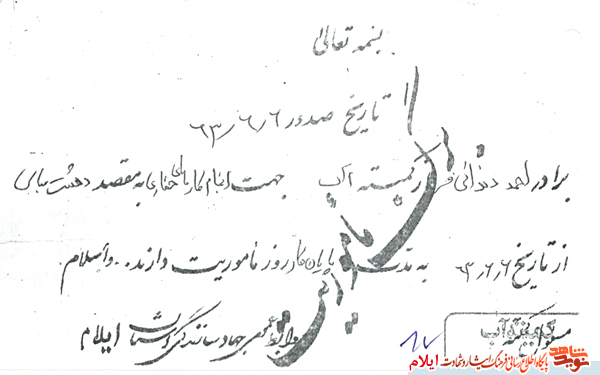 بسمه تعالی
تاریخ صدور ۶۳/۶/۶
برادر احمد دندانی فر از کمیته آب جهت انجام کارهای حفاری به مقصد دهشت عباس
از تاریخ ۶۳/۶/۶ به مدت پایان کار روز مأموریت دارند. والسلام
مسئول کمیته آب
روابط عمومی جهاد سازندگی استان ایلام
نوید شاهد
پایگاه اطلاع رسانی فرهنگ ایثار و شهادت ایلام